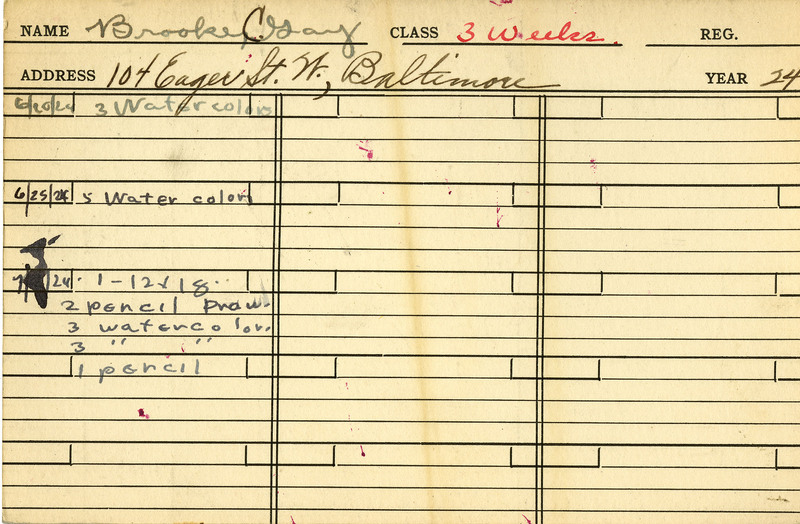 NAME Brooke, C. Gay CLASS 3 Weeks. REG.
ADDRESS 104 Eager St. W., Baltimore YEAR 24
6/20/24 3 Water colors
6/25/24 5 Water colors
7/ /24 1-12x18
2 pencil Draw.
3 watercolor.
3 " "
1 pencil